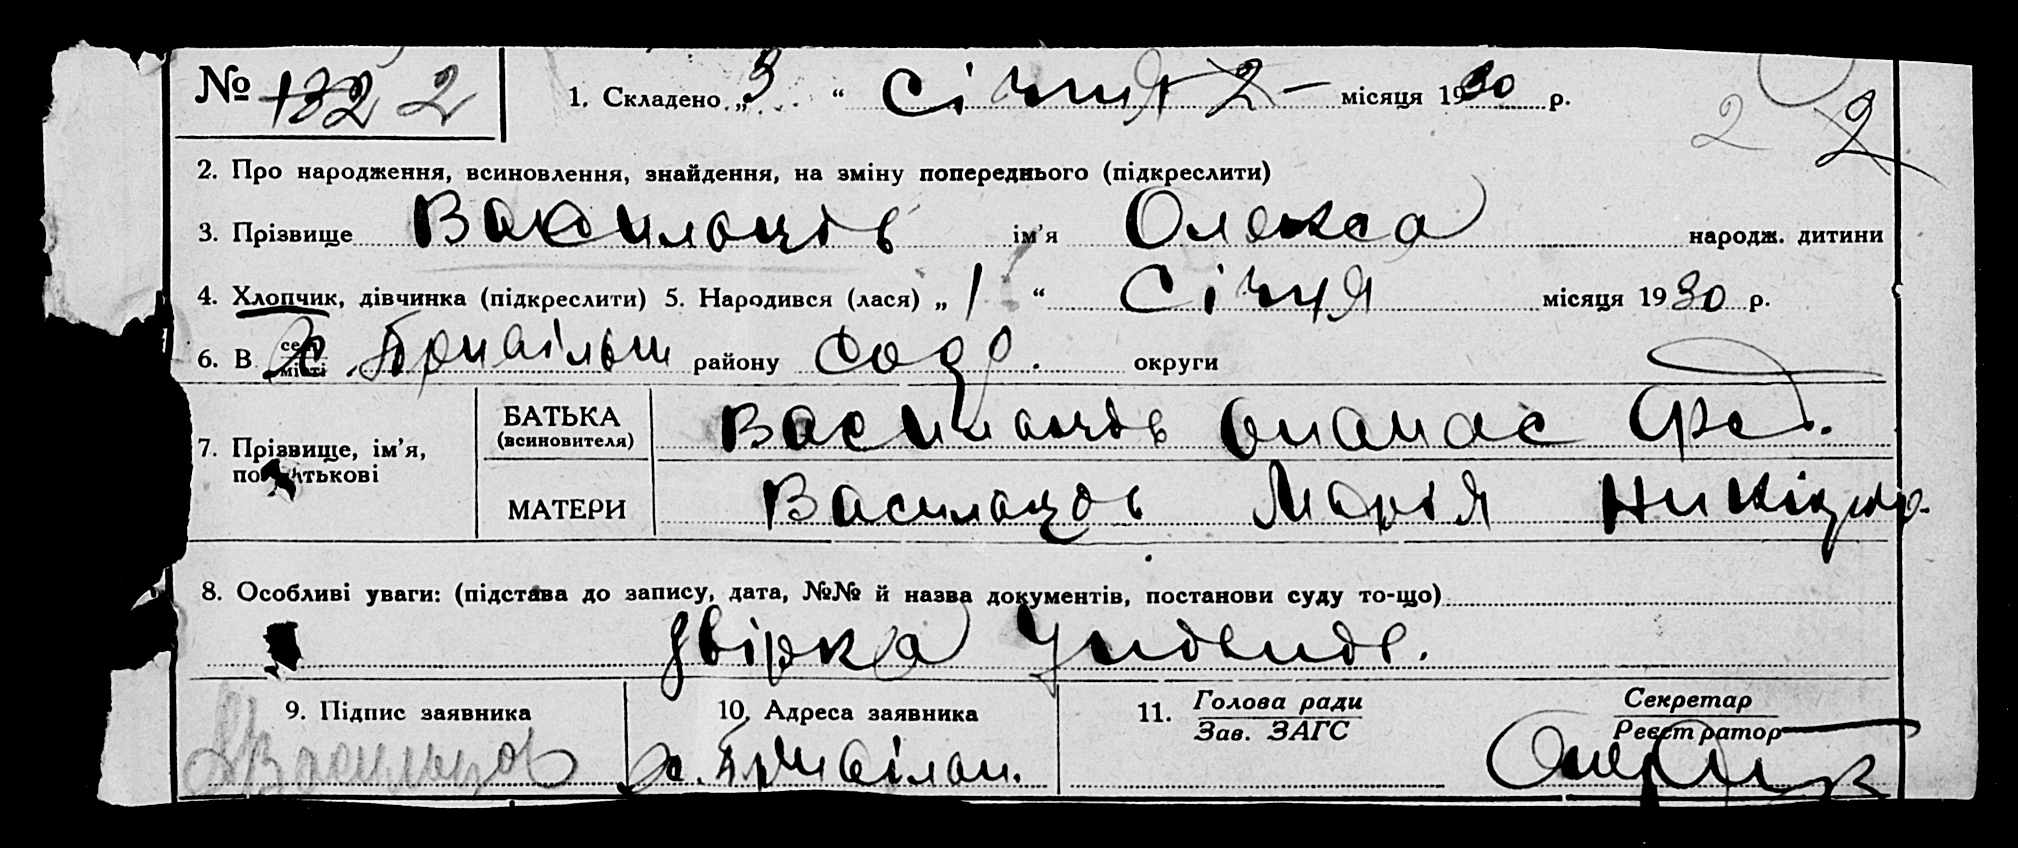 № 132 2 1. Складено „3“ Січня 2 — місяця 1930 р.
2 2
2. Про народження, всиновлення, знайдення, на зміну попереднього (підкреслити)
3. Прізвище Васильців ім'я Олекса народж. дитини
4. Хлопчик, дівчинка (підкреслити) 5. Народився (лася) „1“ Січня місяця 1930 р.
6. В х. Привільн району округи
7. Прізвище, ім'я, по батькові
БАТЬКА (всиновителя) Опанас
МАТЕРИ Марія
8. Особливі уваги: (підстава до запису, дата, №№ й назва документів, постанови суду то-що)
звірка
9. Підпис заявника 10. Адреса заявника 11. Голова ради Зав. ЗАГС Секретар Реєстратор
х. Привільн.